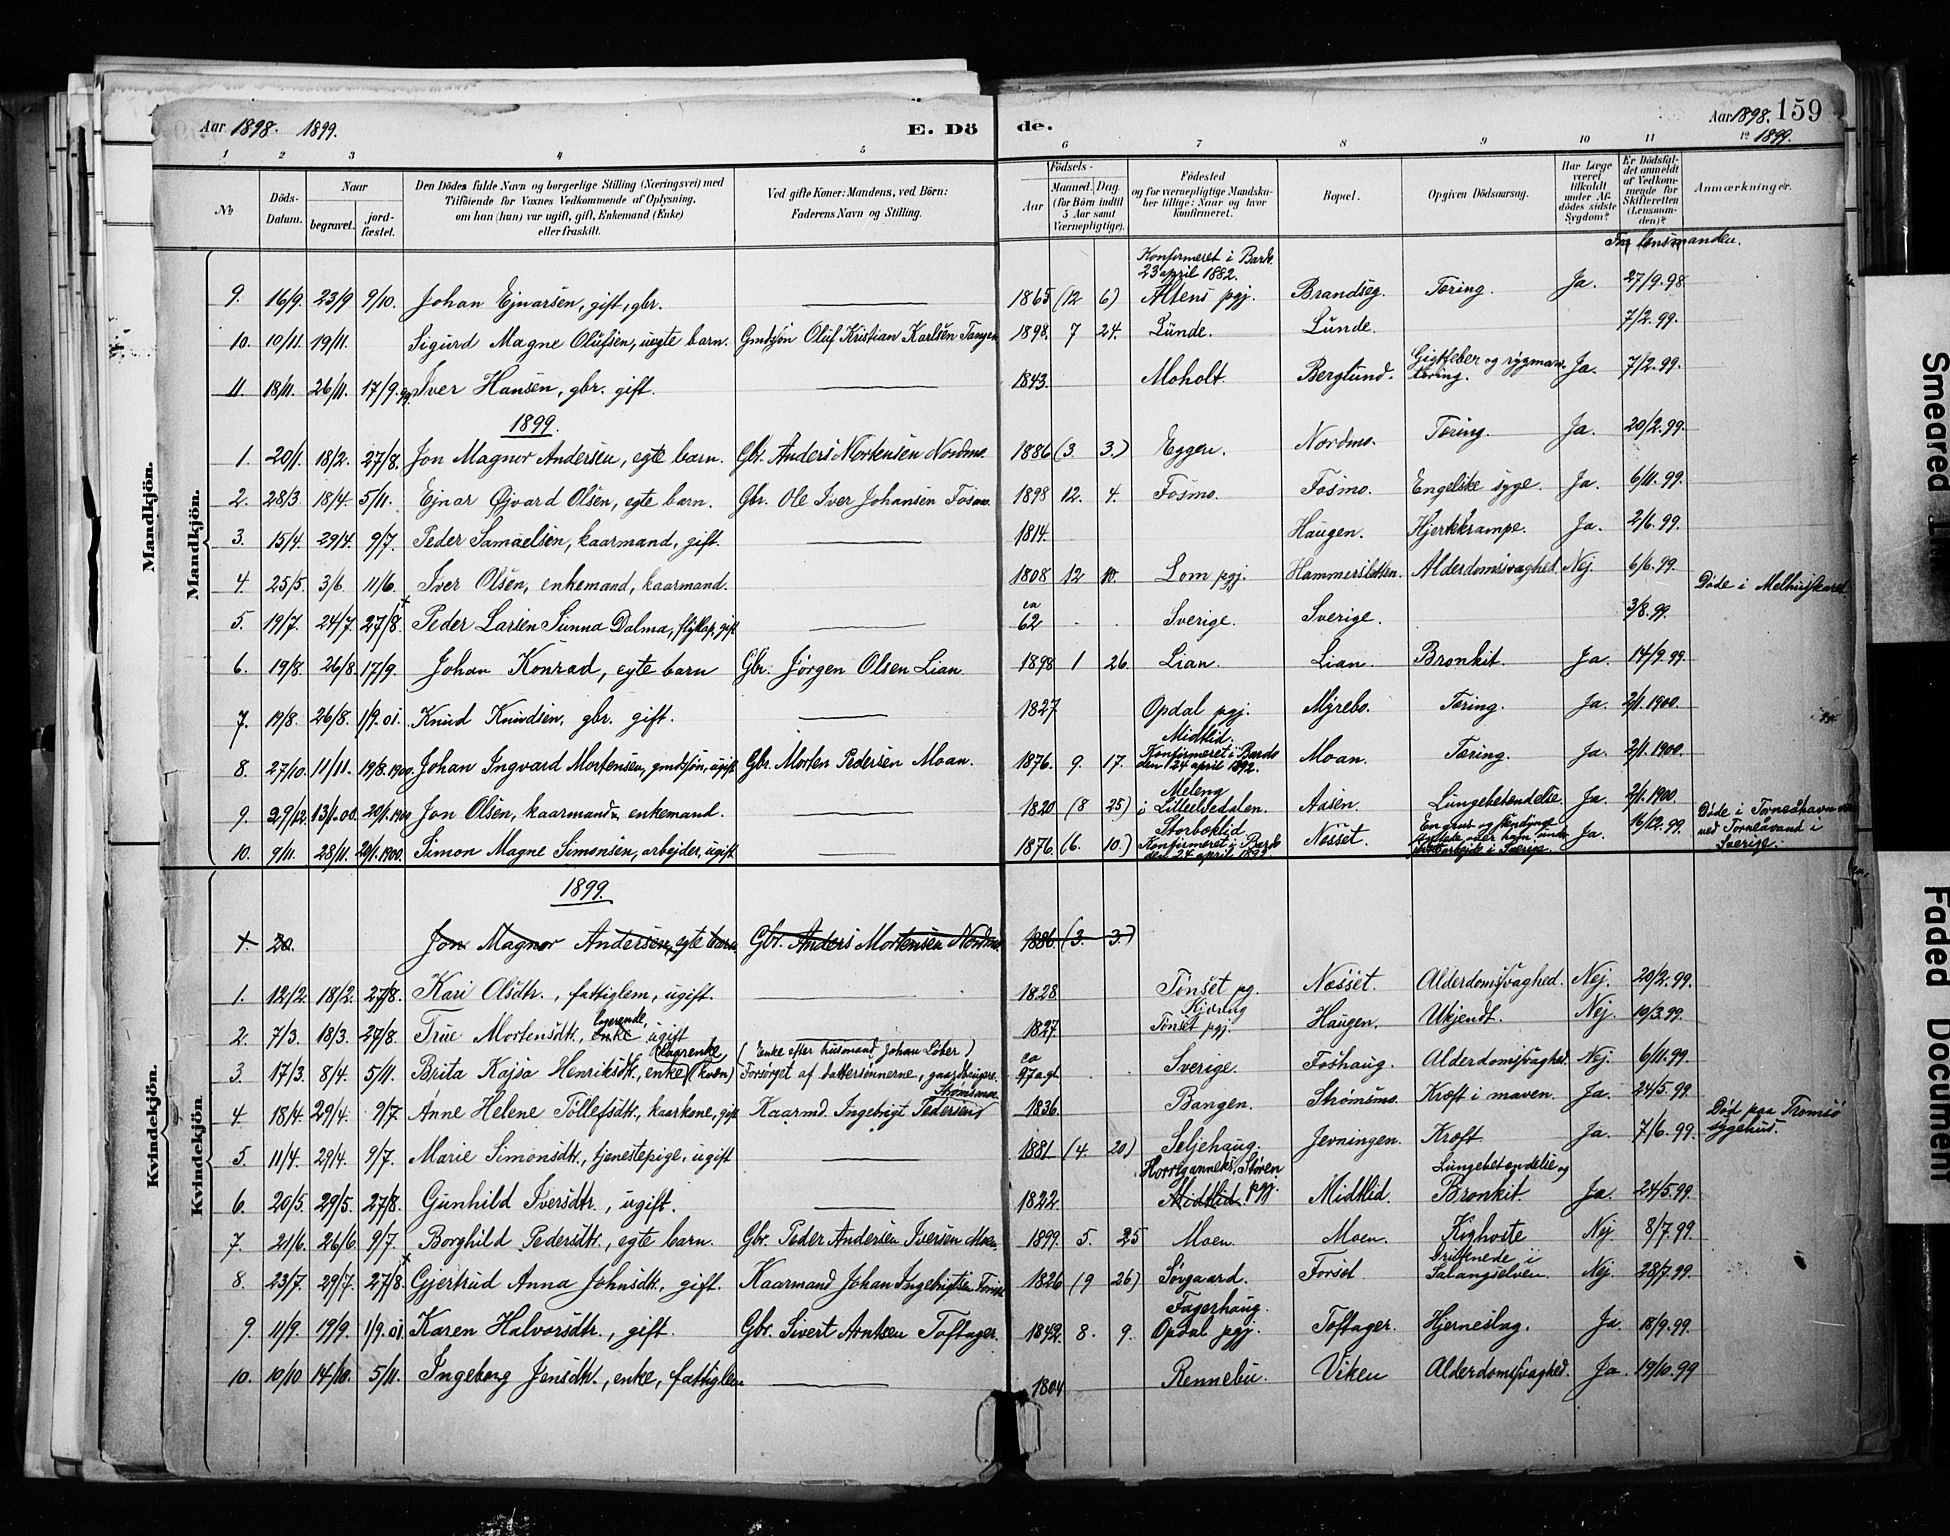 Aar 1898. 1899. E. Dö de. Aar 1898. 159
1899.
1 2 3 4 5 6 7 8 9 10 11 12
№ Döds-Datum. Naar begravet. jordfæstet. Den Dödes fulde Navn og borgerlige Stilling (Næringsvei) med Tilföiende for Voxnes Vedkommende af Oplysning, om han (hun) var ugift, gift, Enkemand (Enke) eller fraskilt. Ved gifte Koner: Mandens, ved Börn: Faderens Navn og Stilling. Födsels- Aar Maaned. Dag (for Börn indtil 5 Aar samt Værnepligtige). Födested og for værnepligtige Mandskaber tillige: Naar og hvor konfirmeret. Bopæl. Opgiven Dödsaarsag. Har Læge været tilkaldt under Afdödes sidste Sygdom? Er Dödsfaldet anmeldt af Vedkommende for Skifteretten (Lensmanden)? Anmærkninger.
Mandkjön.
Mandkjön.
For lensmanden.
Konfirmeret i Bardo
23 april 1882.
9. 16/9. 23/9 9/10. Johan Ejnarsen, gift, gbr. 1865 (12 6) Altens pgj. Brandseg. Tæring. Ja. 27/9.98
10. 10/11. 19/11. Sigurd Magne Olufsen, uegte barn. Gmdsjøn Oluf Kristian Karlsen Tangen 1898. 7 24. Lunde. Lunde. 7/2.99.
11. 18/11. 26/11. 17/9.99. Iver Hansen, gbr. gift. 1843. Moholt. Berglund. Gigtfeber og rygmarvtæring. Ja. 7/2.99.
1899.
1. 20/1. 18/2. 27/8. Jon Magnor Andersen, egte barn. Gbr. Anders Mortensen Nordmo. 1886 (3. 3.) Eggen. Nordmo. Tæring. Ja. 20/2.99.
2. 28/3 18/4. 5/11. Ejnar Øjvard Olsen, egte barn. Gbr. Ole Iver Johansen Fosmo. 1898 12. 4. Fosmo. Fosmo. Engelske syge. Ja. 6/11.99.
3. 15/4. 29/4. 9/7. Peder Samuelsen, kaarmand, gift. 1814. Haugen. Hjertekrampe. Ja. 2/6.99.
4. 25/5. 3/6. 11/6. Iver Olsen, enkemand, kaarmand. 1808 12 10. Lom pgj. Hammersletten. Alderdomssvaghed. Nej. 6/6.99.
5. 19/7. 24/7. 27/8. Peder Larsen Sunna Dalma, flytlap, gift ca 62 Sverige. Sverige. 3/8.99. Døde i Melhusskaret
6. 19/8. 26/8. 17/9. Johan Konrad, egte barn Gbr. Jørgen Olsen Lian. 1898 1 26. Lian. Lian. Bronkit. Ja. 14/9.99.
7. 19/8. 26/8. 1/9.01. Knud Knudsen, gbr. gift. 1827 Opdal pgj. Myrebo. Tæring. Ja. 2/1.1900.
8. 27/10. 11/11. 19/8.1900. Johan Ingvard Mortensen, gmdsjøn, ugift Gbr. Morten Pedersen Moan. 1876. 9. 17. Midtlid. Konfirmeret i Bardo den 24 april 1892. Moan. Tæring. Ja. 2/1.1900.
9. 29/12. 13/1.00. 20/1.1900 Jon Olsen, kaarmand, enkemand. 1820 (8 25) Meleng i Lilleelvedalen. Aasen. Lungebetendelse. Ja. 2/1.1900.
10. 9/11. 28/11. 20/1.1900. Simon Magne Simonsen, arbejder, ugift 1876. (6. 10.) Storbæklid Konfirmeret i Bardo den 24 april 1892. Næsset. En grus og stendynge styrtede over ham under arbejde i Sverige. Ja. 16/12.99. Døde i Torneåhavn ved Torneåvand i Sverige.
Kvindekjön.
Kvindekjön.
1899.
1. 20. Jon Magnor Andersen, egte barn Gbr. Anders Mortensen Nordmo. 1886. (3. 3.)
1. 12/2. 18/2. 27/8. Kari Olsdtr., fattiglem, ugift. 1828 Tønset pg. Næsset. Alderdomssvaghed. Nej. 20/2.99.
2. 7/3. 18/3. 27/8. True Mortensdtr., logerende, enke ugift 1827 Tønset pgj. Haugen. Ukjendt. Nej. 19/3.99.
3. 17/3. 8/4. 5/11. Brita Kajsa Henriksdtr., enke, kaarenke, (kvæn) (Enke efter husmand Johan Løber) Forsørget af dattersønnerne, gaardbrugere. ca 97 agl. Sverige. Foshaug. Alderdomssvaghed. Nej. 6/11.99.
4. 18/4. 29/4. 9/7. Anne Helene Tollefsdtr., kaarkone, gift Kaarmd. Ingebrigt Pedersen Strømsmo 1836. Bangen. Strømsmo. Kræft i maven. Ja. 24/5.99.
5. 11/4. 29/4. 9/7. Marie Simonsdtr., tjenestepige, ugift 1881 (4. 20) Seljehaug. Jevningen. Kræft. Ja. 7/6.99. Død paa Tromsø sygehus.
6. 20/5. 29/5. 27/8. Gunhild Iversdtr., ugift. 1822. Støren pgj. Midtlid. Midtlid. Lungebetændelse og Bronkit Ja. 24/5.99.
7. 21/6. 26/6 9/7. Borghild Pedersdtr., egte barn. Gbr. Peder Andersen Iversen Moen. 1899. 5. 25 Moen. Moen. Kighoste Nej. 8/7.99.
8. 23/7. 29/7. 27/8. Gjertrud Anna Johnsdtr., gift. Kaarmand Johan Ingebrigtsen 1826 (9 26) Sørgaard. Forset. Druknede i Salangselven. Nej. 28/7.99.
9. 11/9. 19/9. 1/9.01. Karen Halvorsdtr., gift. Gbr. Sivert Arntsen Toftager. 1842. 8. 9. Fagerhaug. Opdal pgj. Toftager. Hjerneslag. Ja. 18/9.99.
10. 10/10 14/10. 5/11. Ingeborg Jensdtr., enke, fattiglem 1804 Rennebu. Viken Alderdomssvaghed. Ja. 19/10.99
Smeared
Faded Document